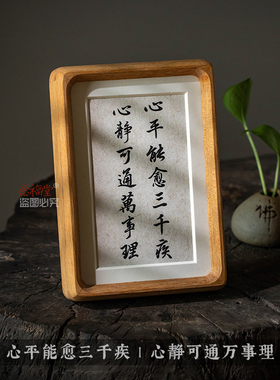 心平能愈三千疾
心静可通萬事理
盗图必究
佛
心平能愈三千疾 | 心静可通万事理